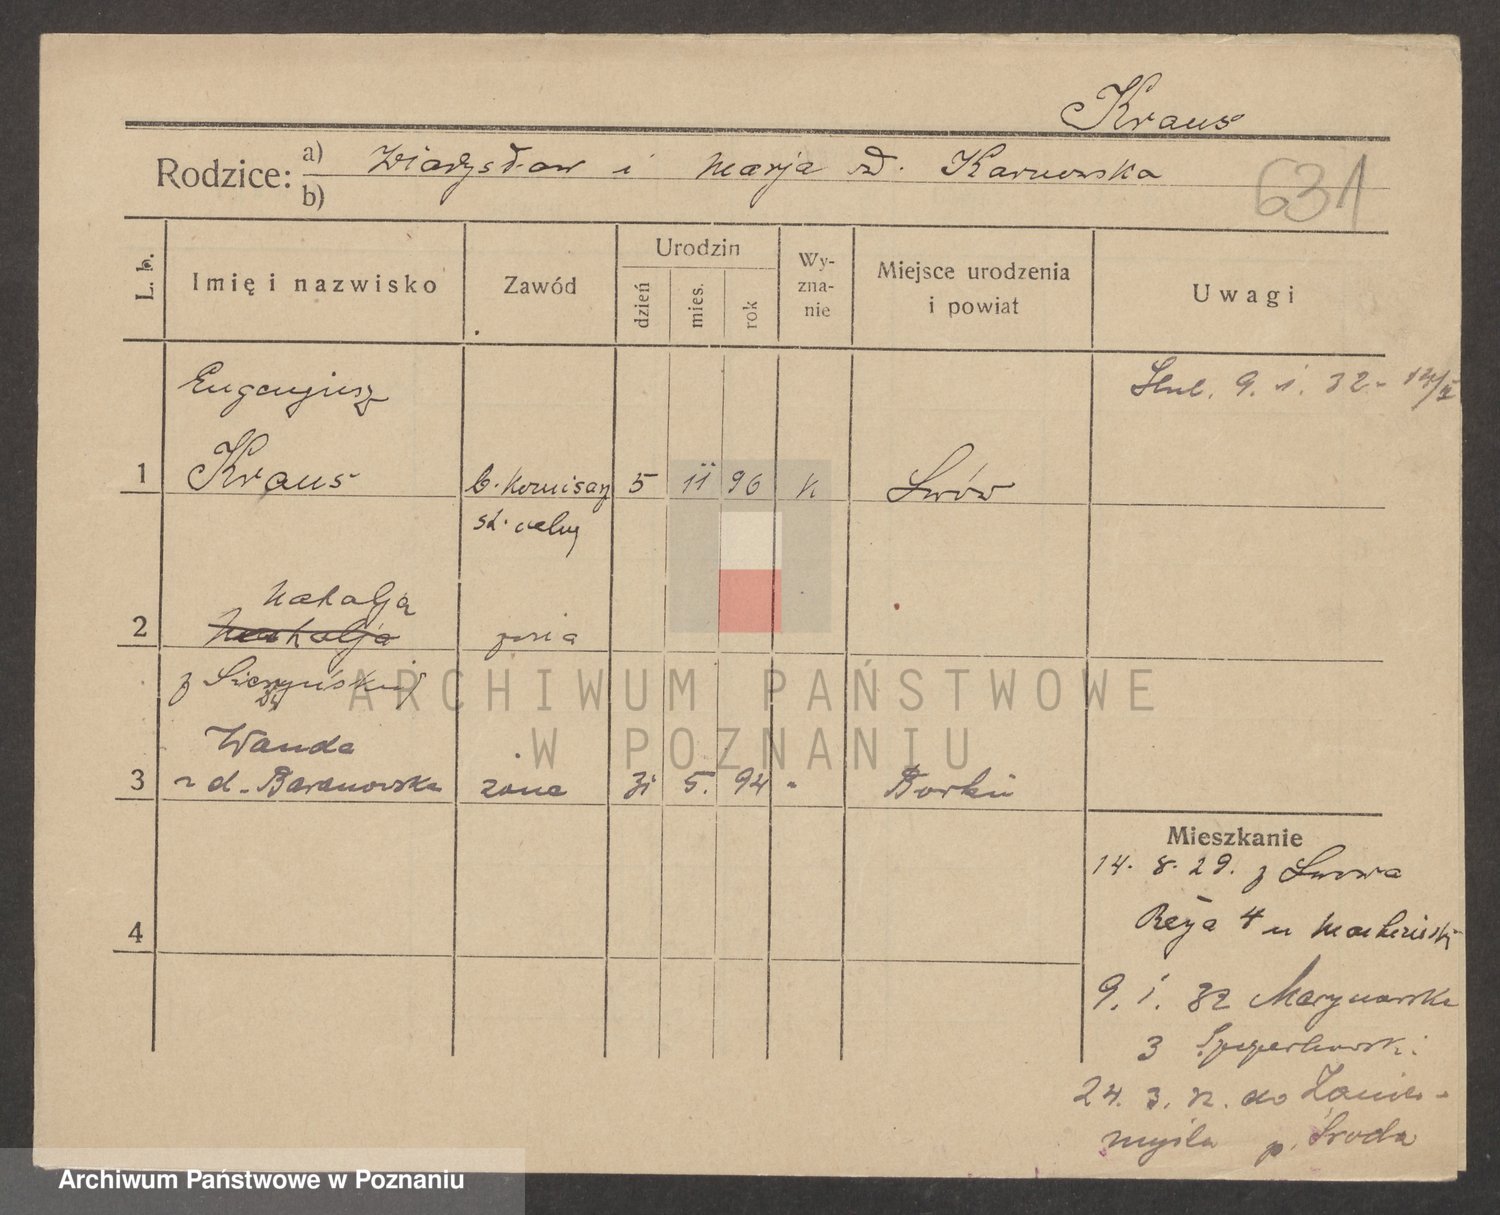 Kraus
Rodzice: a) Władysław i Marja zd. Karnowska
b)
631
L. b.
Imię i nazwisko
Zawód
Urodzin
dzień
mies.
rok
Wy-
zna-
nie
Miejsce urodzenia
i powiat
Uwagi
Eugenjusz
9. 1. 32
1 Kraus b. komisarz 5 11 96 k Lwów
st. celny
Natalja
2 Natalja żona
z
Wanda
3 z d. Baranowska żona 31 5. 94 " Borki
Mieszkanie
14. 8. 29. z Lwowa
4
Reja 4 u
9. 1. 32 Marynarska
3
24. 3. 32. do Zanie-
myśla p. Środa
ARCHIWUM PAŃSTWOWE
W POZNANIU
Archiwum Państwowe w Poznaniu